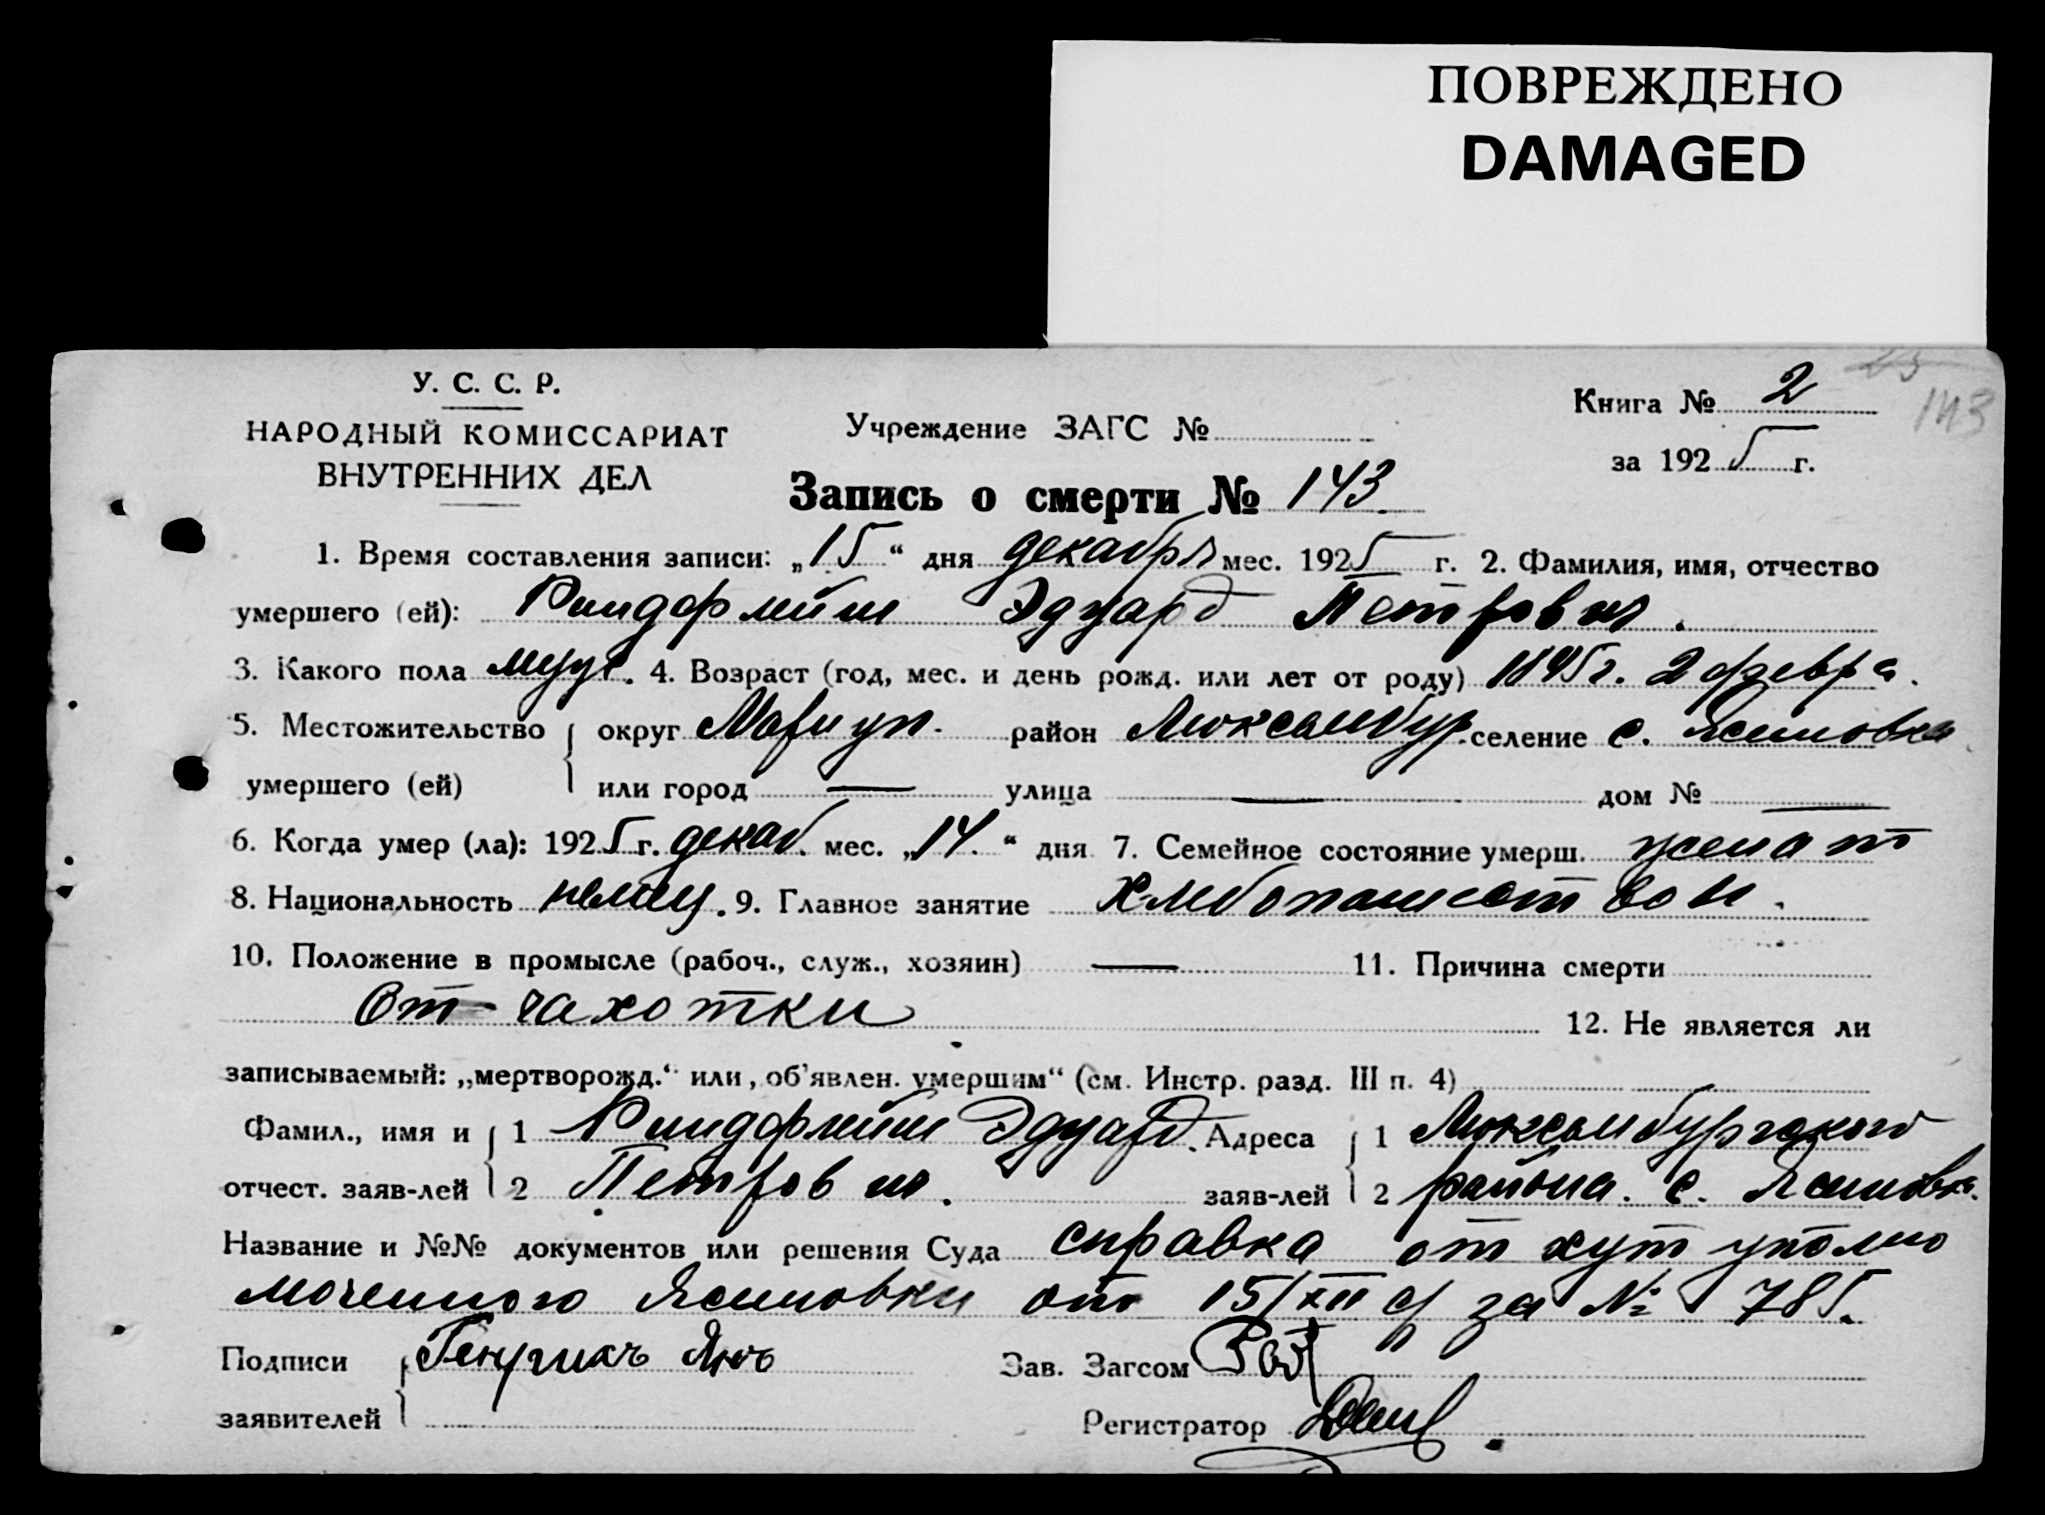 ПОВРЕЖДЕНО
DAMAGED
У. С. С. Р.
НАРОДНЫЙ КОМИССАРИАТ
ВНУТРЕННИХ ДЕЛ
Учреждение ЗАГС №
Книга № 2
143
за 1925 г.
Запись о смерти № 143.
1. Время составления записи: „15“ дня декабря мес. 1925 г. 2. Фамилия, имя, отчество
умершего (ей): Риндфлейш Эдуард Петрович.
3. Какого пола муж. 4. Возраст (год, мес. и день рожд. или лет от роду) 1895 г. 2 февра.
5. Местожительство округ Мариуп. район Люксембур. селение с. Ясиновка
умершего (ей) или город — улица — дом № —
6. Когда умер (ла): 1925 г. декаб. мес. „14.“ дня 7. Семейное состояние умерш. женат
8. Национальность немец. 9. Главное занятие хлебопашеством.
10. Положение в промысле (рабоч., служ., хозяин) — 11. Причина смерти
от чахотки
12. Не является ли
записываемый: „мертворожд.“ или „об'явлен. умершим“ (см. Инстр. разд. III п. 4)
Фамил., имя и 1 Риндфлейш Эдуард. Адреса 1 Люксембургского
отчест. заяв-лей 2 Петрович. заяв-лей 2 района. с. Ясиновка.
Название и №№ документов или решения Суда справка от хут уполно
моченного Ясиновки от 15/XII с/г за № 785.
Подписи Зав. Загсом
заявителей Регистратор